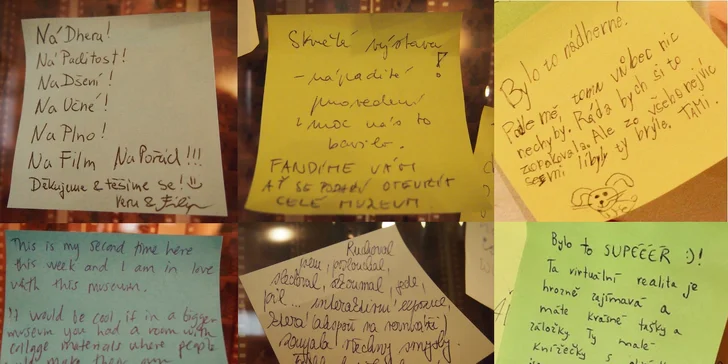 Ná Dhera!
Ná Paditost!
Na Dšení!
Na Učné!
Na Plno!
Na Film Na Pořád!!!
Děkujeme & těšíme se!
Veru & Filip
Skvělá výstava!
- nápadité
provedení
& moc nás to
bavilo.
FANDÍME VÁM
AŤ SE PODAŘÍ OTEVŘÍT
CELÉ MUZEUM
Bylo to nádherné!
Podle mě, tomu vůbec nic
nechyby. Ráda bych si to
zopakovala. Ale ze všeho nejvíc
se mi líbyly ty brýle. TAMI.
This is my second time here
this week and I am in love
with this museum.
It would be cool, if in a bigger
museum you had a room with
collage materials where people
make their own
jsem, poslouchal,
sledoval, zkoumal, jedl,
pil... interaktivní expozice,
která alespoň na rozhlížej
zaujala všechny smysly.
Bylo to SUPÉÉÉR :)!
Ta virtuální realita je
hrozně zajímavá a
máte krásné tašky a
záložky. Ty malé
knížečky s